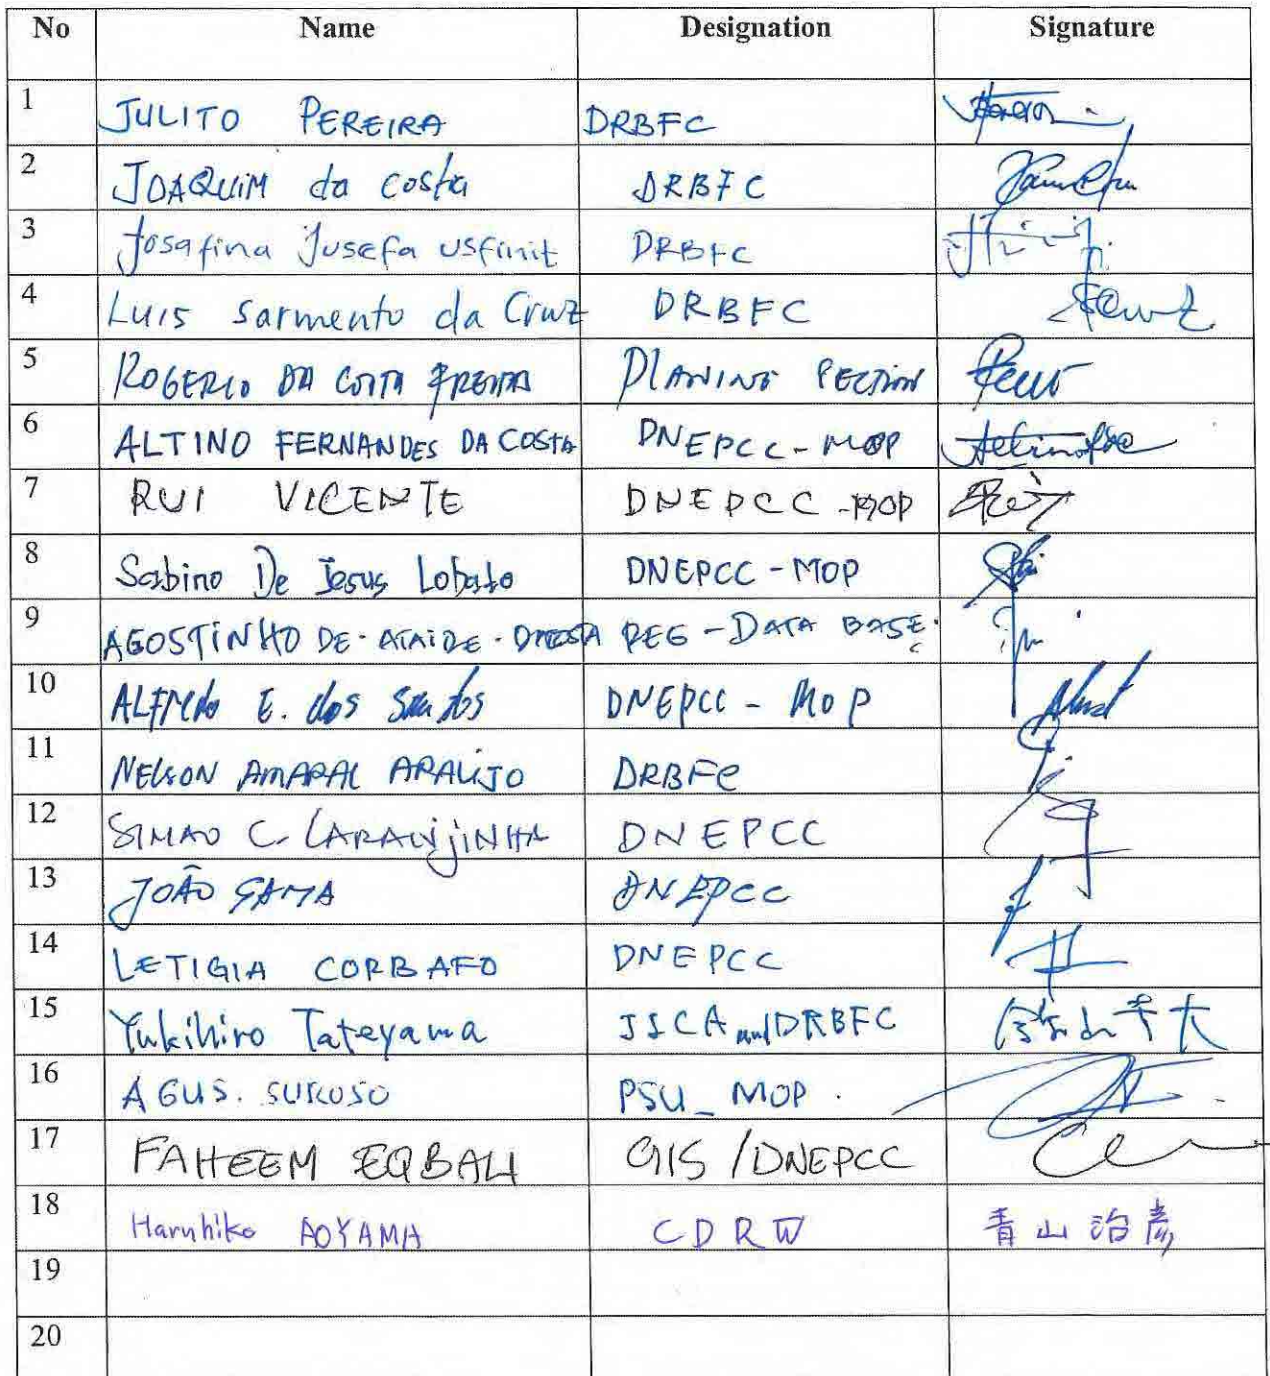 No Name Designation Signature
1 JULITO PEREIRA DRBFC
2 JOAQUIM da costa DRBFC
3 Josafina Jusefa usfinit DRBFC
4 Luis Sarmento da Cruz DRBFC
5 ROGERIO DA COSTA FREITAS PLANING SECTION
6 ALTINO FERNANDES DA COSTA DNEPCC-MOP
7 RUI VICENTE DNEPCC-MOP
8 Sabino De Jesus Lobato DNEPCC-MOP
9 AGOSTINHO DE-ATAIDE- REG-DATA BASE.
10 ALFREDO E. dos Santos DNEPCC - MOP
11 NELSON AMARAL ARAUJO DRBFC
12 SIMAO C. LARANJINHA DNEPCC
13 JOÃO GAMA DNEPCC
14 LETIGIA CORBAFO DNEPCC
15 Yukihiro Tateyama JICA and DRBFC
16 AGUS. SUROSO PSU_MOP.
17 FAHEEM EQBALI GIS/DNEPCC
18 Haruhiko AOYAMA CDRW 青山治彦
19
20